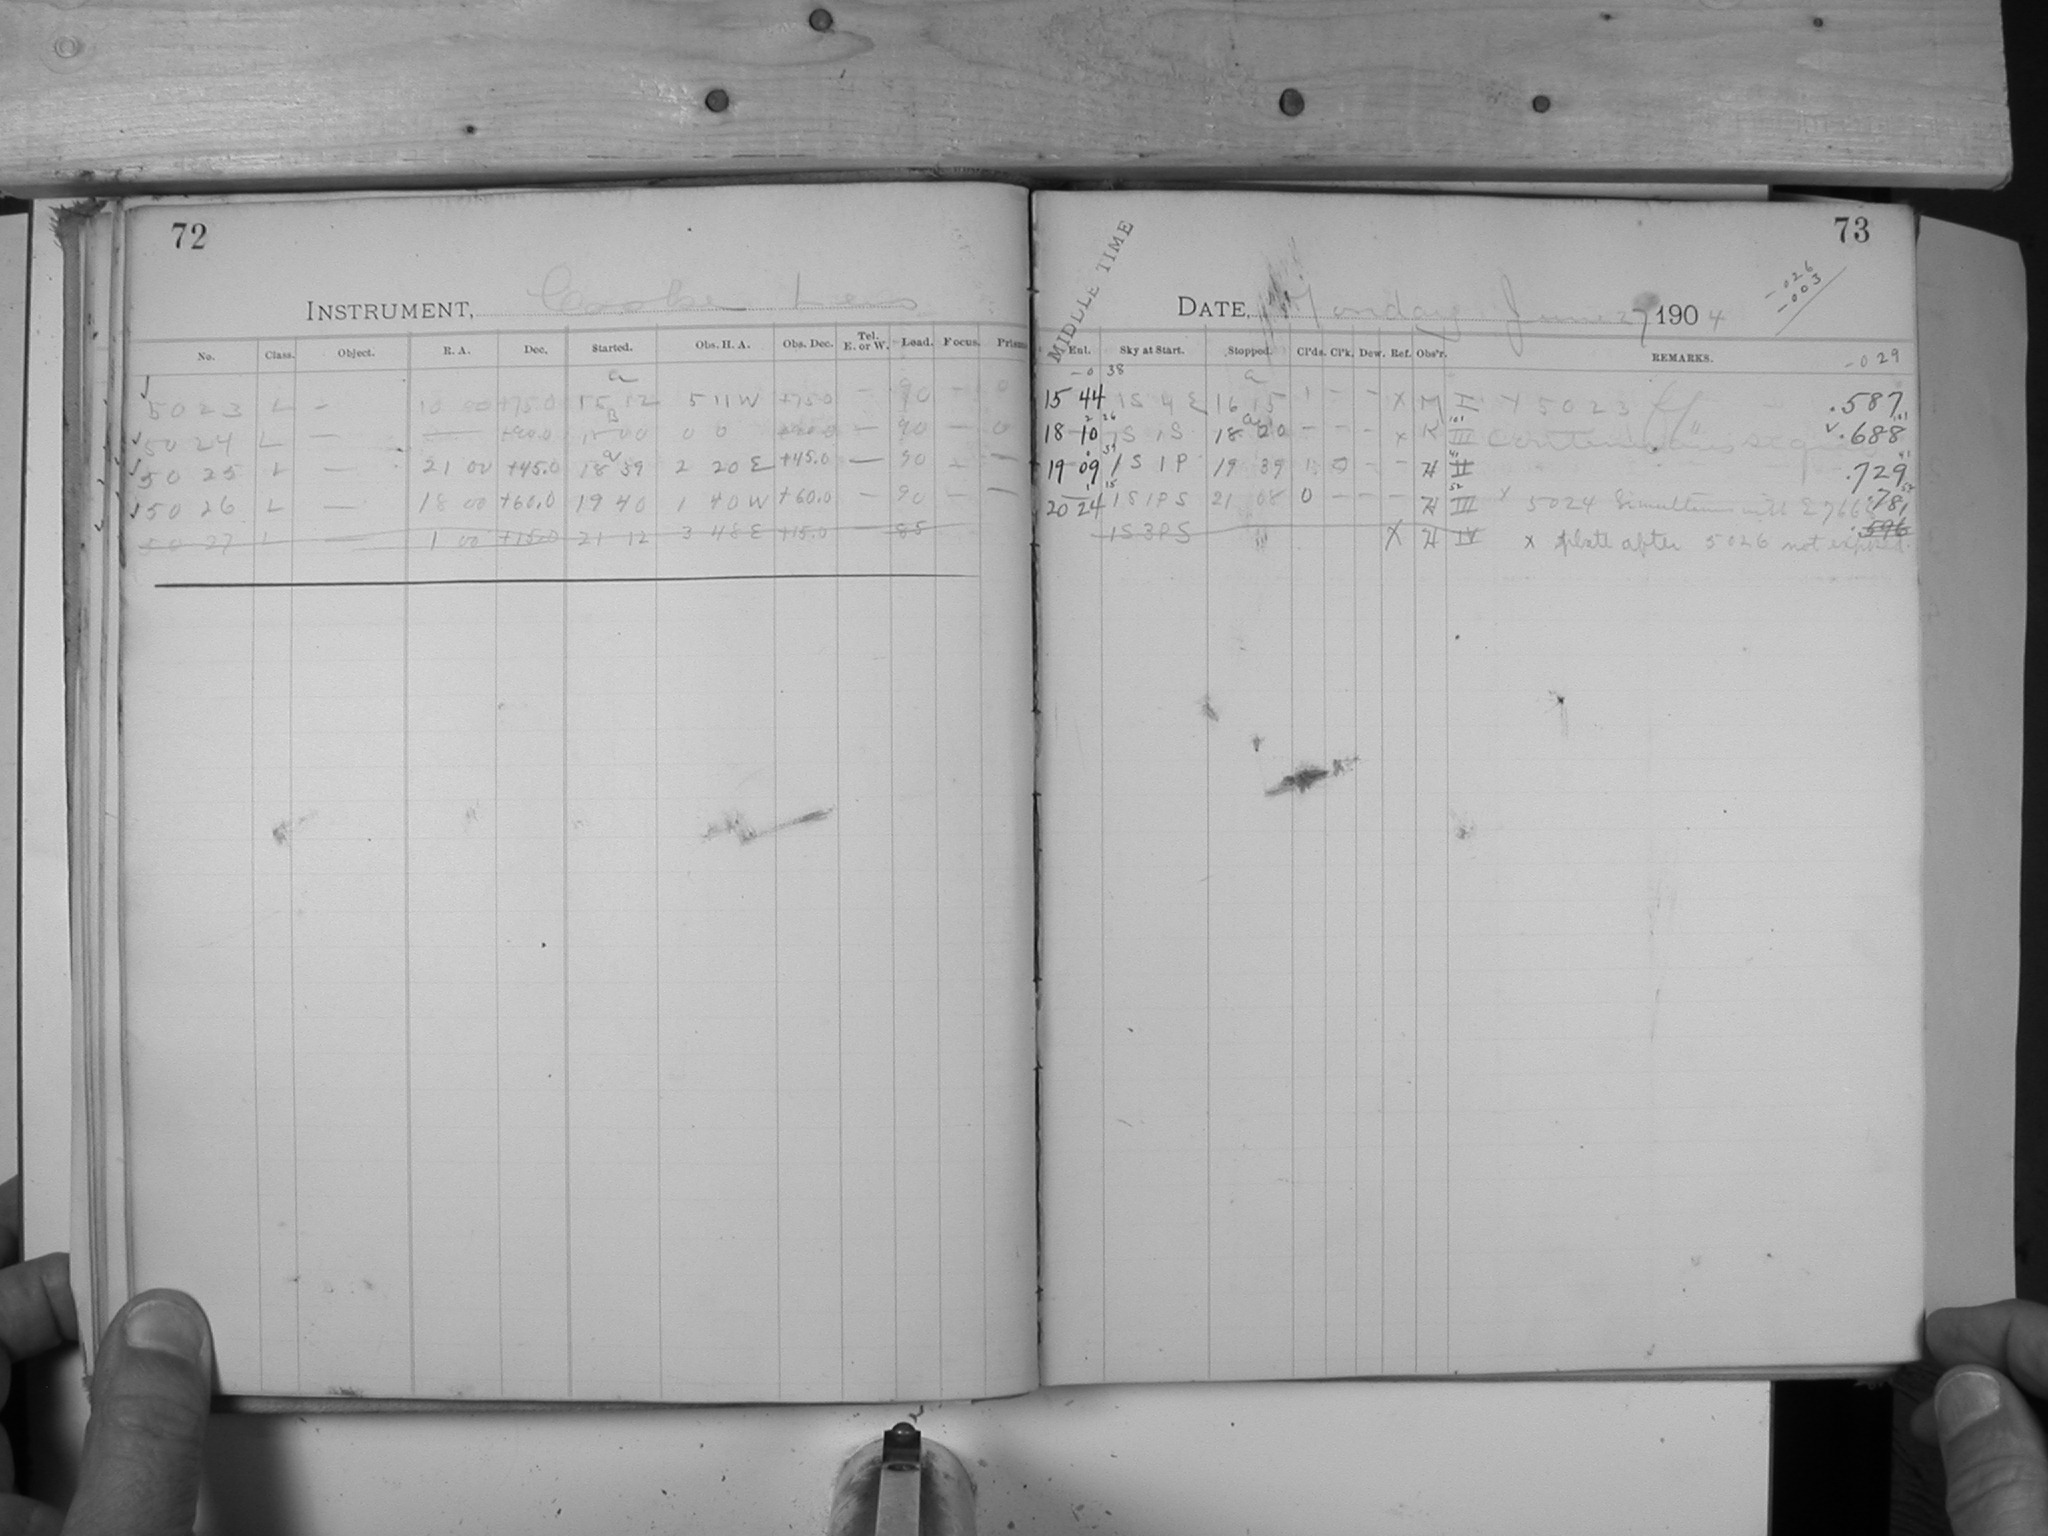 72
INSTRUMENT, Cooke Lens
No. Class. Object. R. A. Dec. Started. Obs. H. A. Obs. Dec. Tel. E. or W. Load. Focus. Prism
a
5023 L - 10 00 +75.0 15 12 5 11 W +75.0 - 90 - 0
B
5024 L — — +90.0 18 00 0 0 +90.0 — 90 — 0
a
5025 L — 21 00 +45.0 18 39 2 20 E +45.0 — 90 — —
5026 L — 18 00 +60.0 19 40 1 40 W +60.0 — 90 — —
5027 L — 1 00 +15.0 21 12 3 48 E +15.0 — 85
73
MIDDLE TIME
DATE, Monday June 27 1904
-026
-003
Enl. Sky at Start. Stopped. Cl'ds. Cl'k. Dew. Ref. Obs'r. REMARKS.
-029
-0 38 a
15 44 1S 4 E 16 15 1 - - X M I X 5023 .587
2 26 a 101 101
18 10 1S 1S 18 20 - - - x K III .688
39 41 41
19 09 1S 1P 19 39 1 0 - - H II .729
1 15 52 52
20 24 1S 1PS 21 08 0 - - - H III x 5024 Simultenus with .781
1S 3PS X H IV x plate after 5026 not exposed. .596